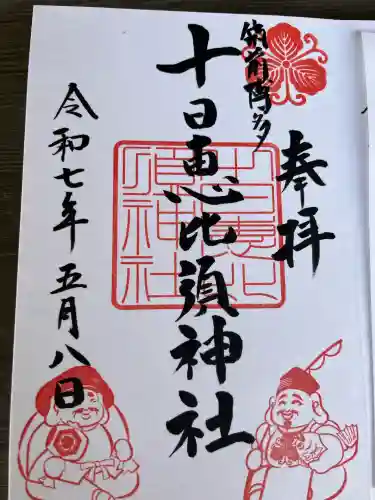 奉拝
筑前博多
十日恵比須神社
令和七年五月八日
十日恵比須神社